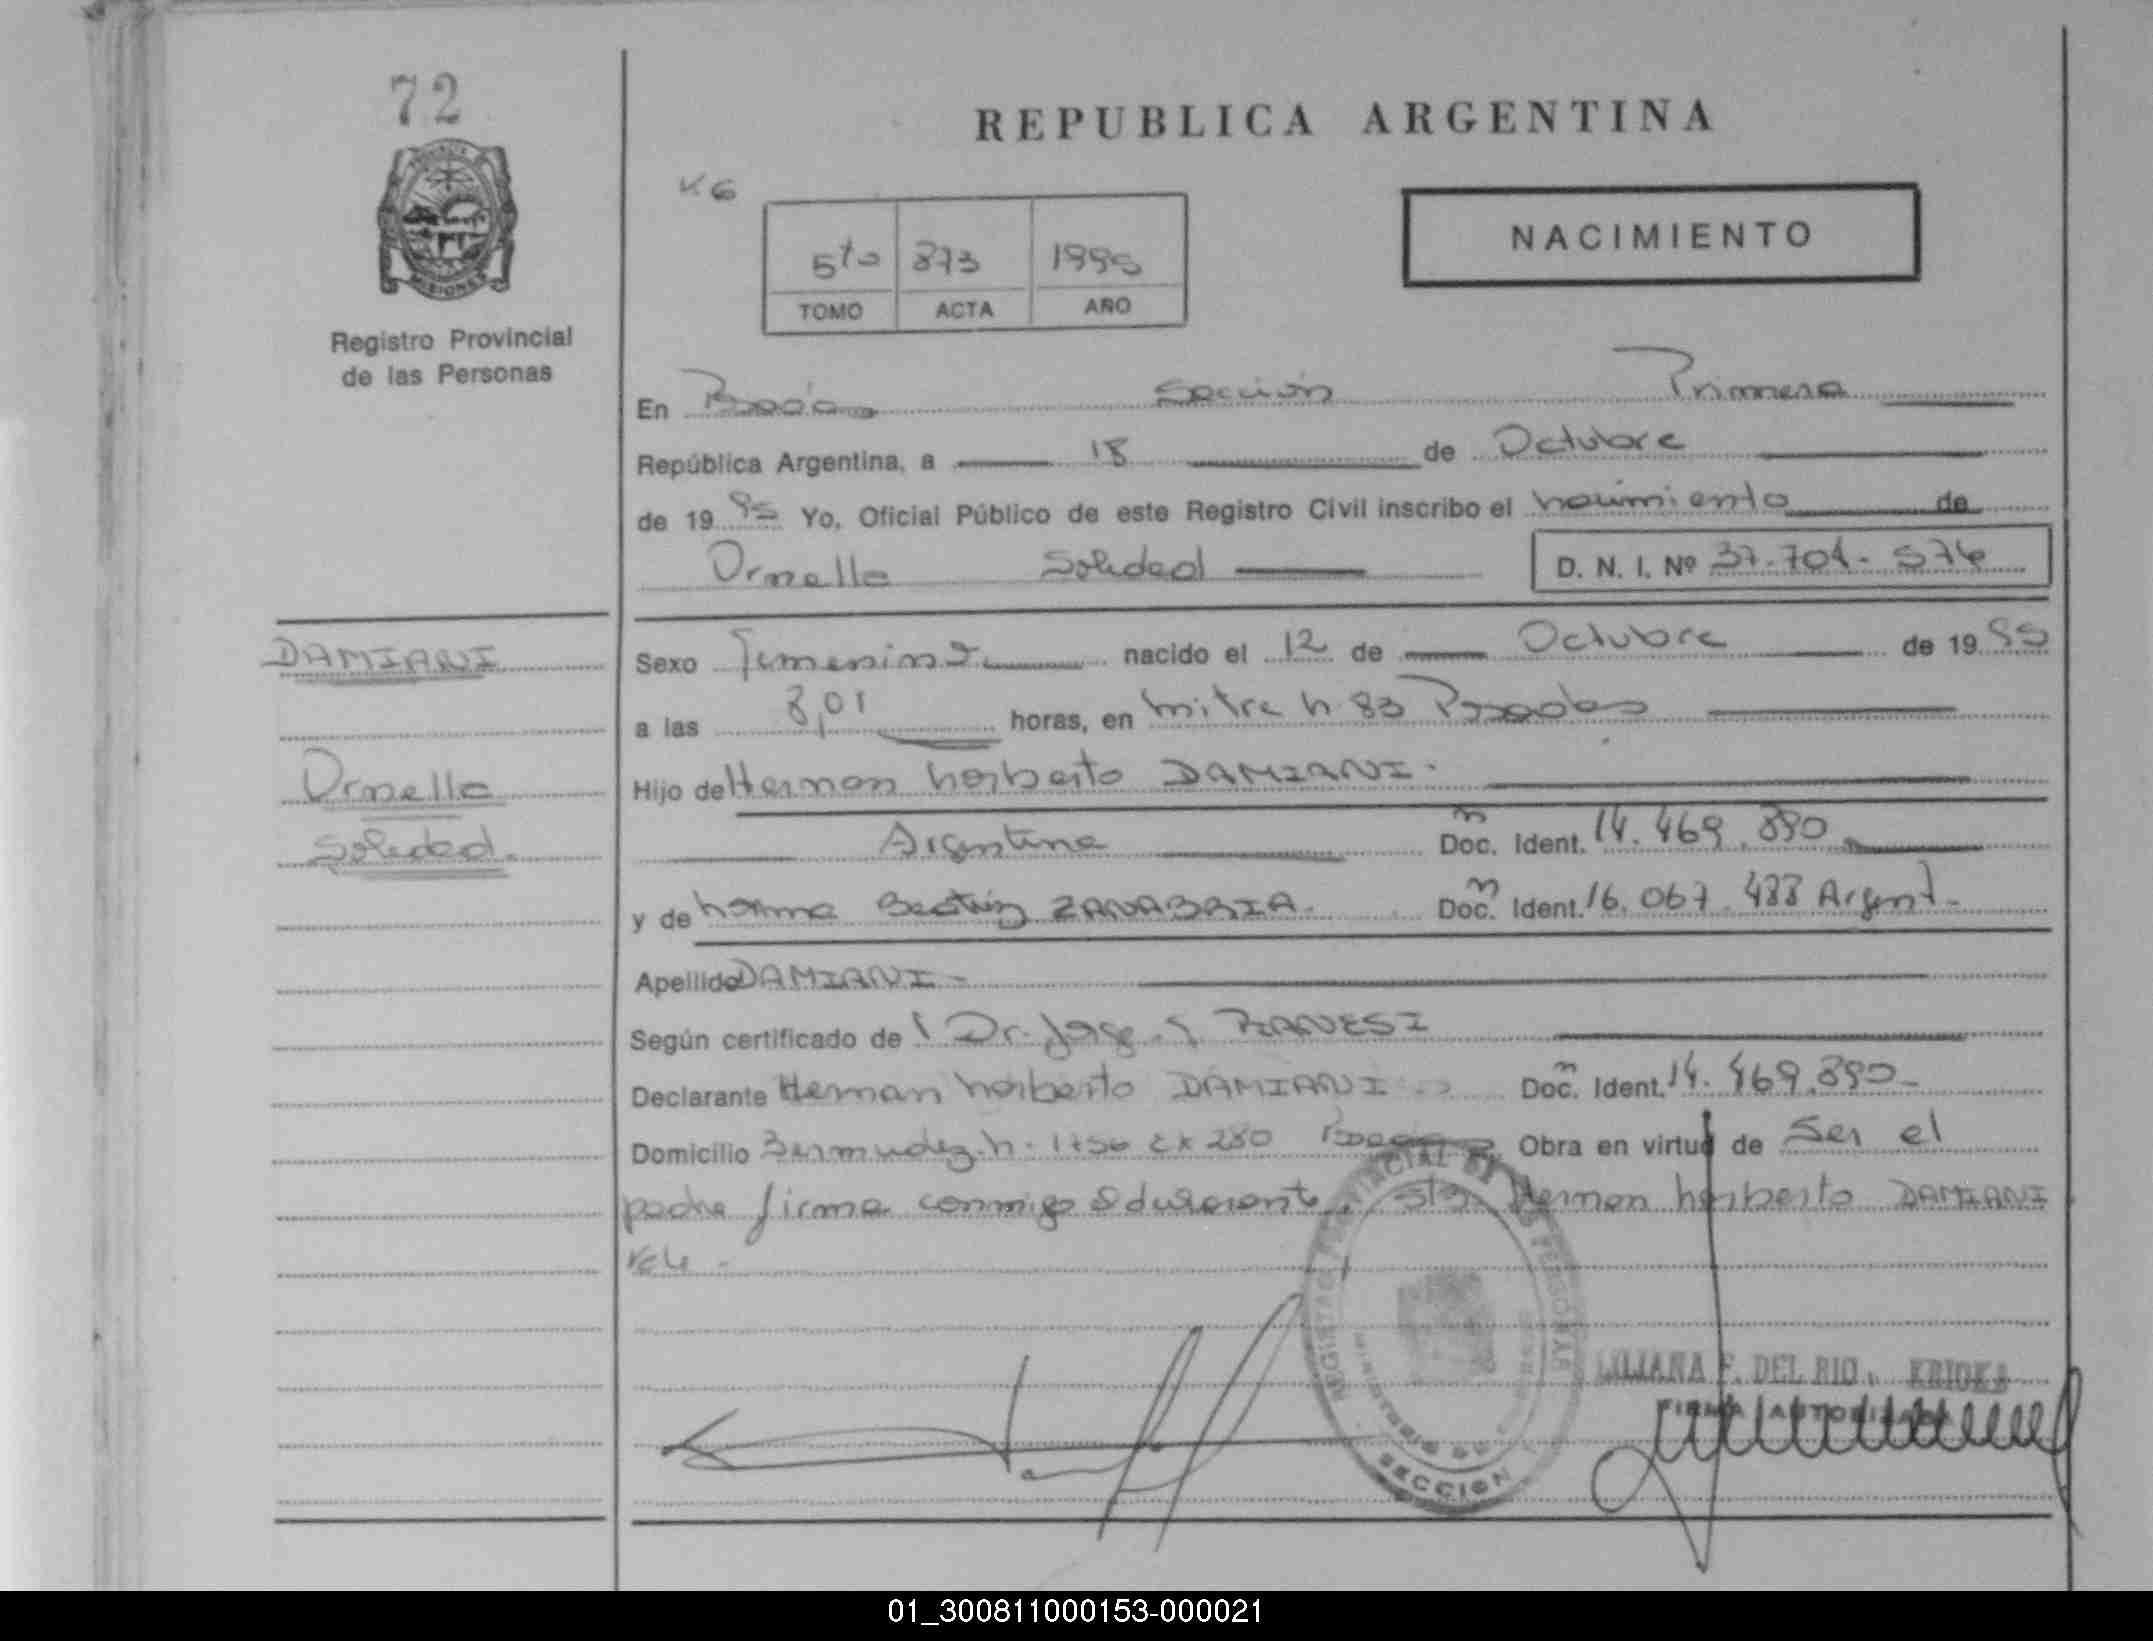 72
REPUBLICA ARGENTINA
NACIMIENTO
5to 873 1995
TOMO ACTA AÑO
Registro Provincial
de las Personas
En Posadas Sección Primera
República Argentina, a 18 de Octubre
de 1995 Yo, Oficial Público de este Registro Civil inscribo el nacimiento de
Ornella Soledad D. N. I. Nº 37.704.576
DAMIANI
Sexo Femenino nacido el 12 de Octubre de 1995
a las 8,01 horas, en mitre n 83 Posadas
Ornella
Hijo de Hernan Norberto DAMIANI.
Soledad.
Argentina Doc. Ident. 14.469.890
y de Norma Beatriz ZANABRIA. Doc. Ident. 16.067.488 Argent.
Apellido DAMIANI -
Según certificado de Dr. Jorge PIANESI
Declarante Hernan Norberto DAMIANI Doc. Ident. 14.469.890-
Domicilio Bermudez n. 1756 Obra en virtud de Ser el
padre firma conmigo Hernan Norberto DAMIANI
Vale -
REGISTRO PROVINCIAL DE LAS PERSONAS
MINISTERIO DE
SECCION
LILIANA F. DEL RIO
FIRMA AUTORIZADA
01_300811000153-000021